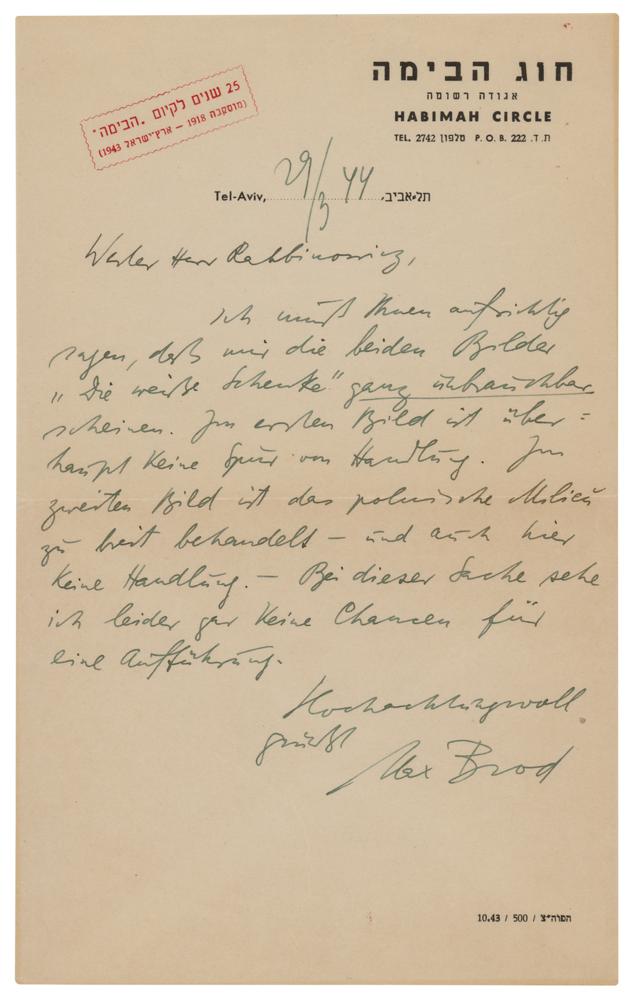 חוג הבימה
אגודה רשומה
HABIMAH CIRCLE
TEL. 2742 טלפון P. O. B. 222 ת.ד.
25 שנים לקיום "הבימה"
(מוסקבה 1918 – ארץ־ישראל 1943)
Tel-Aviv, 29/3 44 תל־אביב,
Werter Herr Rabbinowicz,
ich muß Ihnen aufrichtig
sagen, daß mir die beiden Bilder
„Die weiße Schenke" ganz unbrauchbar
scheinen. Im ersten Bild ist über=
haupt keine Spur von Handlung. Im
zweiten Bild ist das polnische Milieu
zu breit behandelt – und auch hier
keine Handlung. – Bei dieser Sache sehe
ich leider gar keine Chancen für
eine Aufführung.
Hochachtungsvoll
grüßt
Max Brod
10.43 / 500 / הפוה"צ